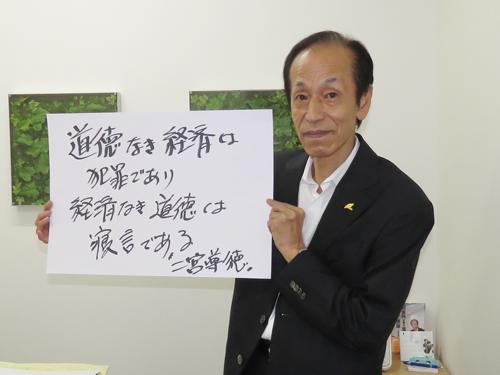 道徳なき経済は
犯罪であり
経済なき道徳は
寝言である
二宮尊徳。